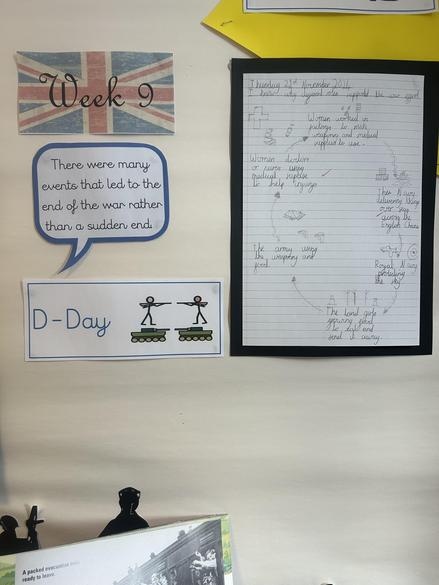 Week 9
There were many
events that led to the
end of the war rather
than a sudden end.
D-Day
Thursday 21st November 2024
I know why
the war effort.
Women worked in
factory to make
weapons and medical
supplies to use.
Women doctors
or nurses using
medical supplies
to help injuries
The Navy
delivering things
over seas
across the
English Channel
Royal Navy
protecting
the sky
The army using
the weapons and
food.
The land girls
growing food
to and
send it away.
A packed evacuation
ready to leave.